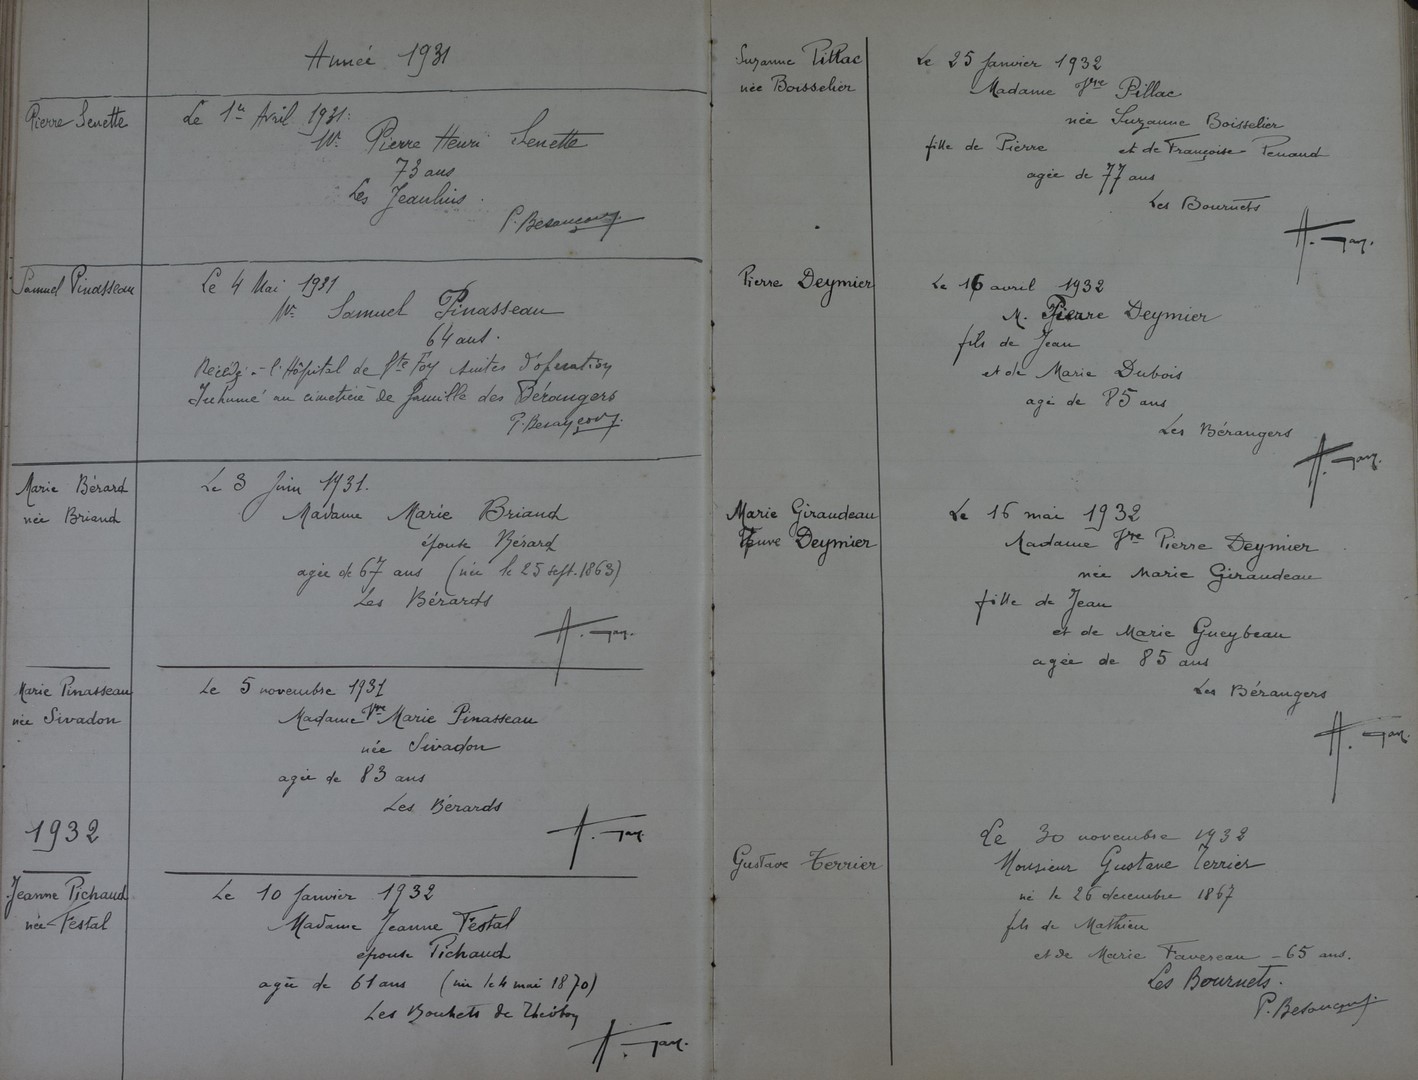 Année 1931
Pierre Senette
Le 1er Avril 1931.
Mr. Pierre Henri Senette
73 ans
Les Jeanhins.
P. Besançon
Samuel Pinasseau
Le 4 Mai 1931
Mr. Samuel Pinasseau
64 ans.
à l'Hôpital de Ste Foy suites d'opération
Inhumé au cimetière de famille des Bérangers
P. Besançon
Marie Bérard
née Briand
Le 3 Juin 1931.
Madame Marie Briand
épouse Bérard
agée de 67 ans (née le 25 sept. 1863)
Les Bérards
Marie Pinasseau
née Sivadon
Le 5 novembre 1931
Madame Vve Marie Pinasseau
née Sivadon
agée de 83 ans
Les Bérards
1932
Jeanne Pichaud
née Festal
Le 10 Janvier 1932
Madame Jeanne Festal
épouse Pichaud
agée de 61 ans (née le 4 mai 1870)
Les Bouhets de
Suzanne Pillac
née Boisselier
Le 25 Janvier 1932
Madame Vve Pillac
née Suzanne Boisselier
fille de Pierre et de Françoise Penaud
agée de 77 ans
Les Bournets
Pierre Deymier
Le 16 avril 1932
M. Pierre Deymier
fils de Jean
et de Marie Dubois
agé de 85 ans
Les Bérangers
Marie Giraudeau
Veuve Deymier
Le 16 mai 1932
Madame Vve Pierre Deymier
née Marie Giraudeau
fille de Jean
et de Marie Gueybeau
agée de 85 ans
Les Bérangers
Gustave Terrier
Le 30 novembre 1932
Monsieur Gustave Terrier
né le 26 décembre 1867
fils de Mathieu
et de Marie Favereau - 65 ans.
Les Bournets.
P. Besançon